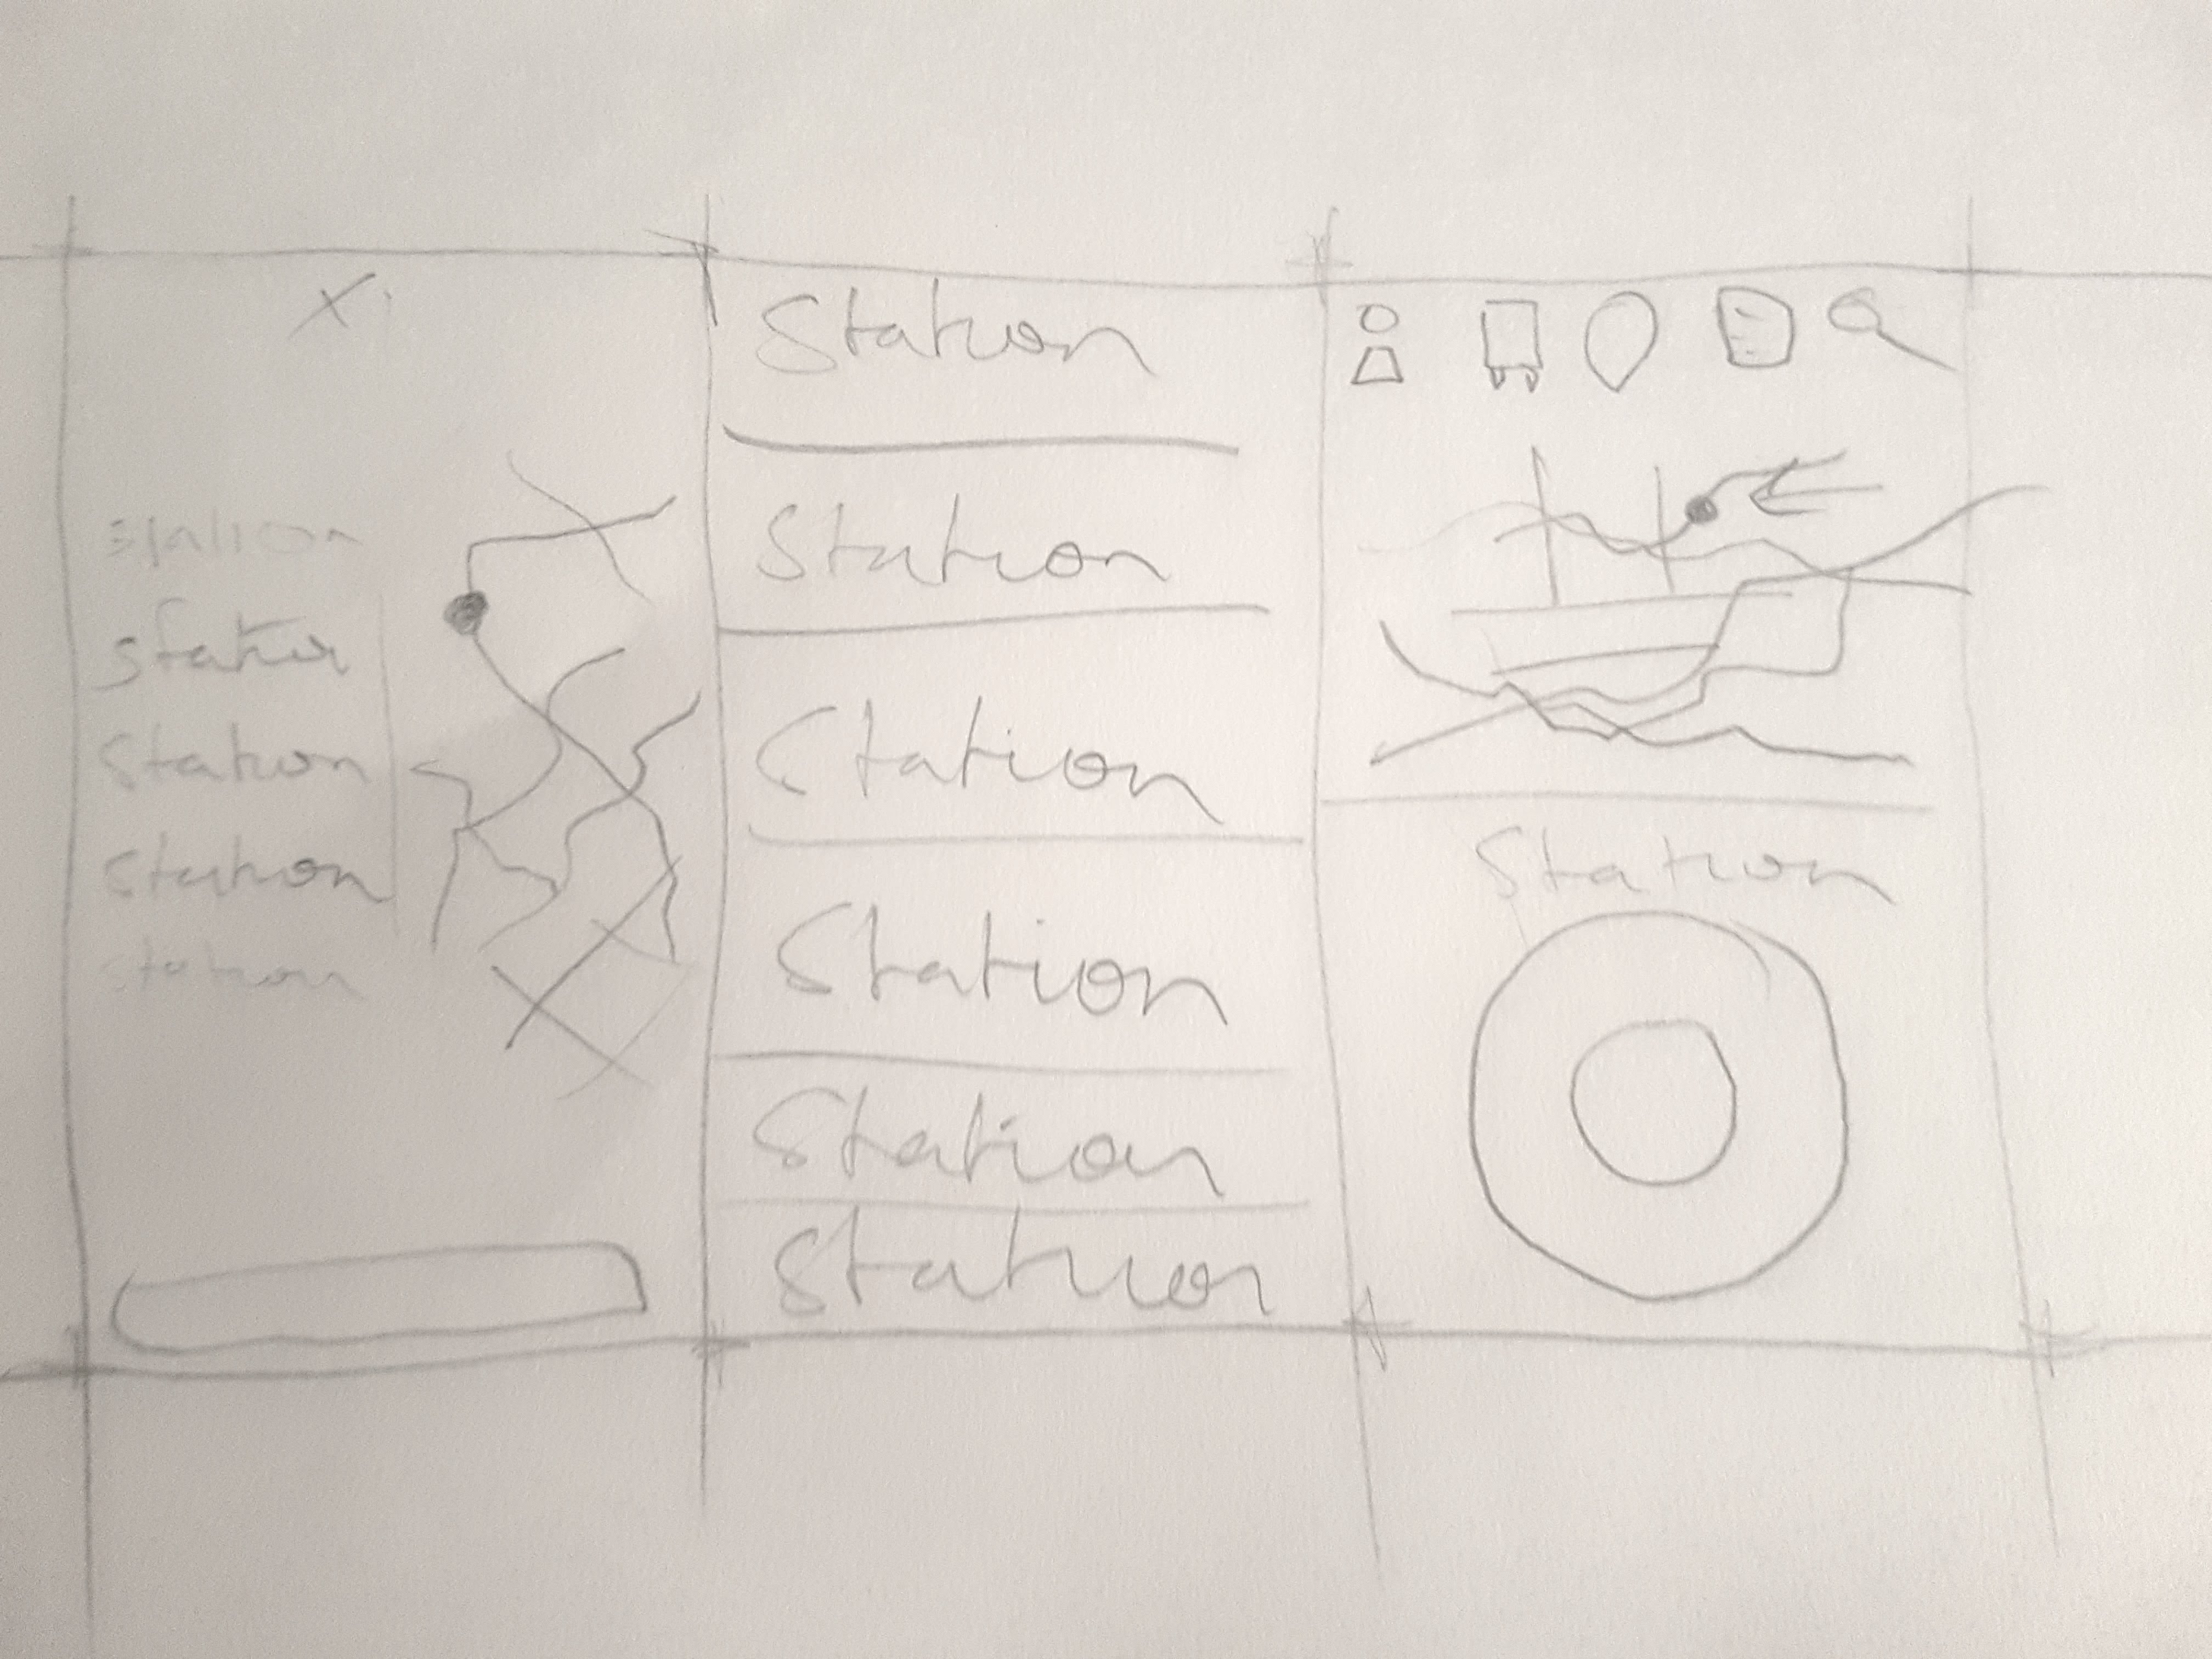 X
station
station
station
station
station
Station
Station
Station
Station
Station
Station
Station